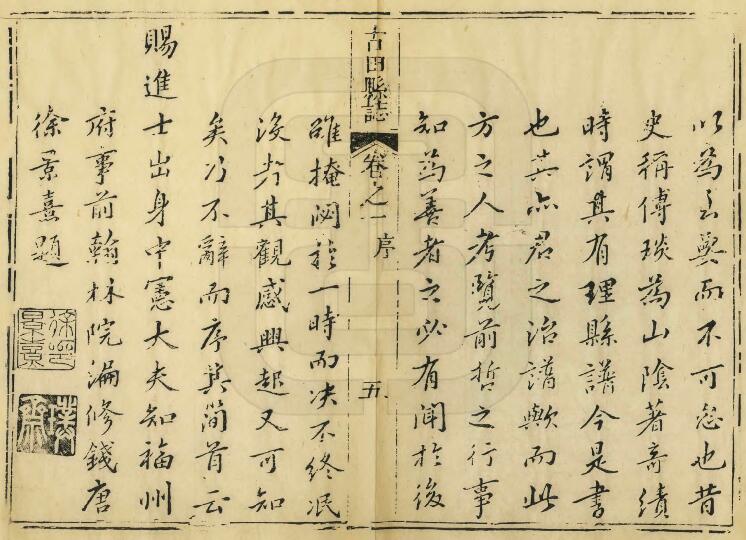 以為之興而不可忽也昔
史稱傅琰為山陰著奇績
時謂其有理縣譜今是書
也其亦君之治譜歟而此
方之人考覽前哲之行事
知為善者之必有聞於後
古田縣誌
卷之一
序
五
雖掩閟於一時而決不終泯
沒於其觀感興起又可知
矣乃不辭而序其簡首云
賜進士出身中憲大夫知福州
府事前翰林院編修錢唐
徐景熹題
徐景熹印